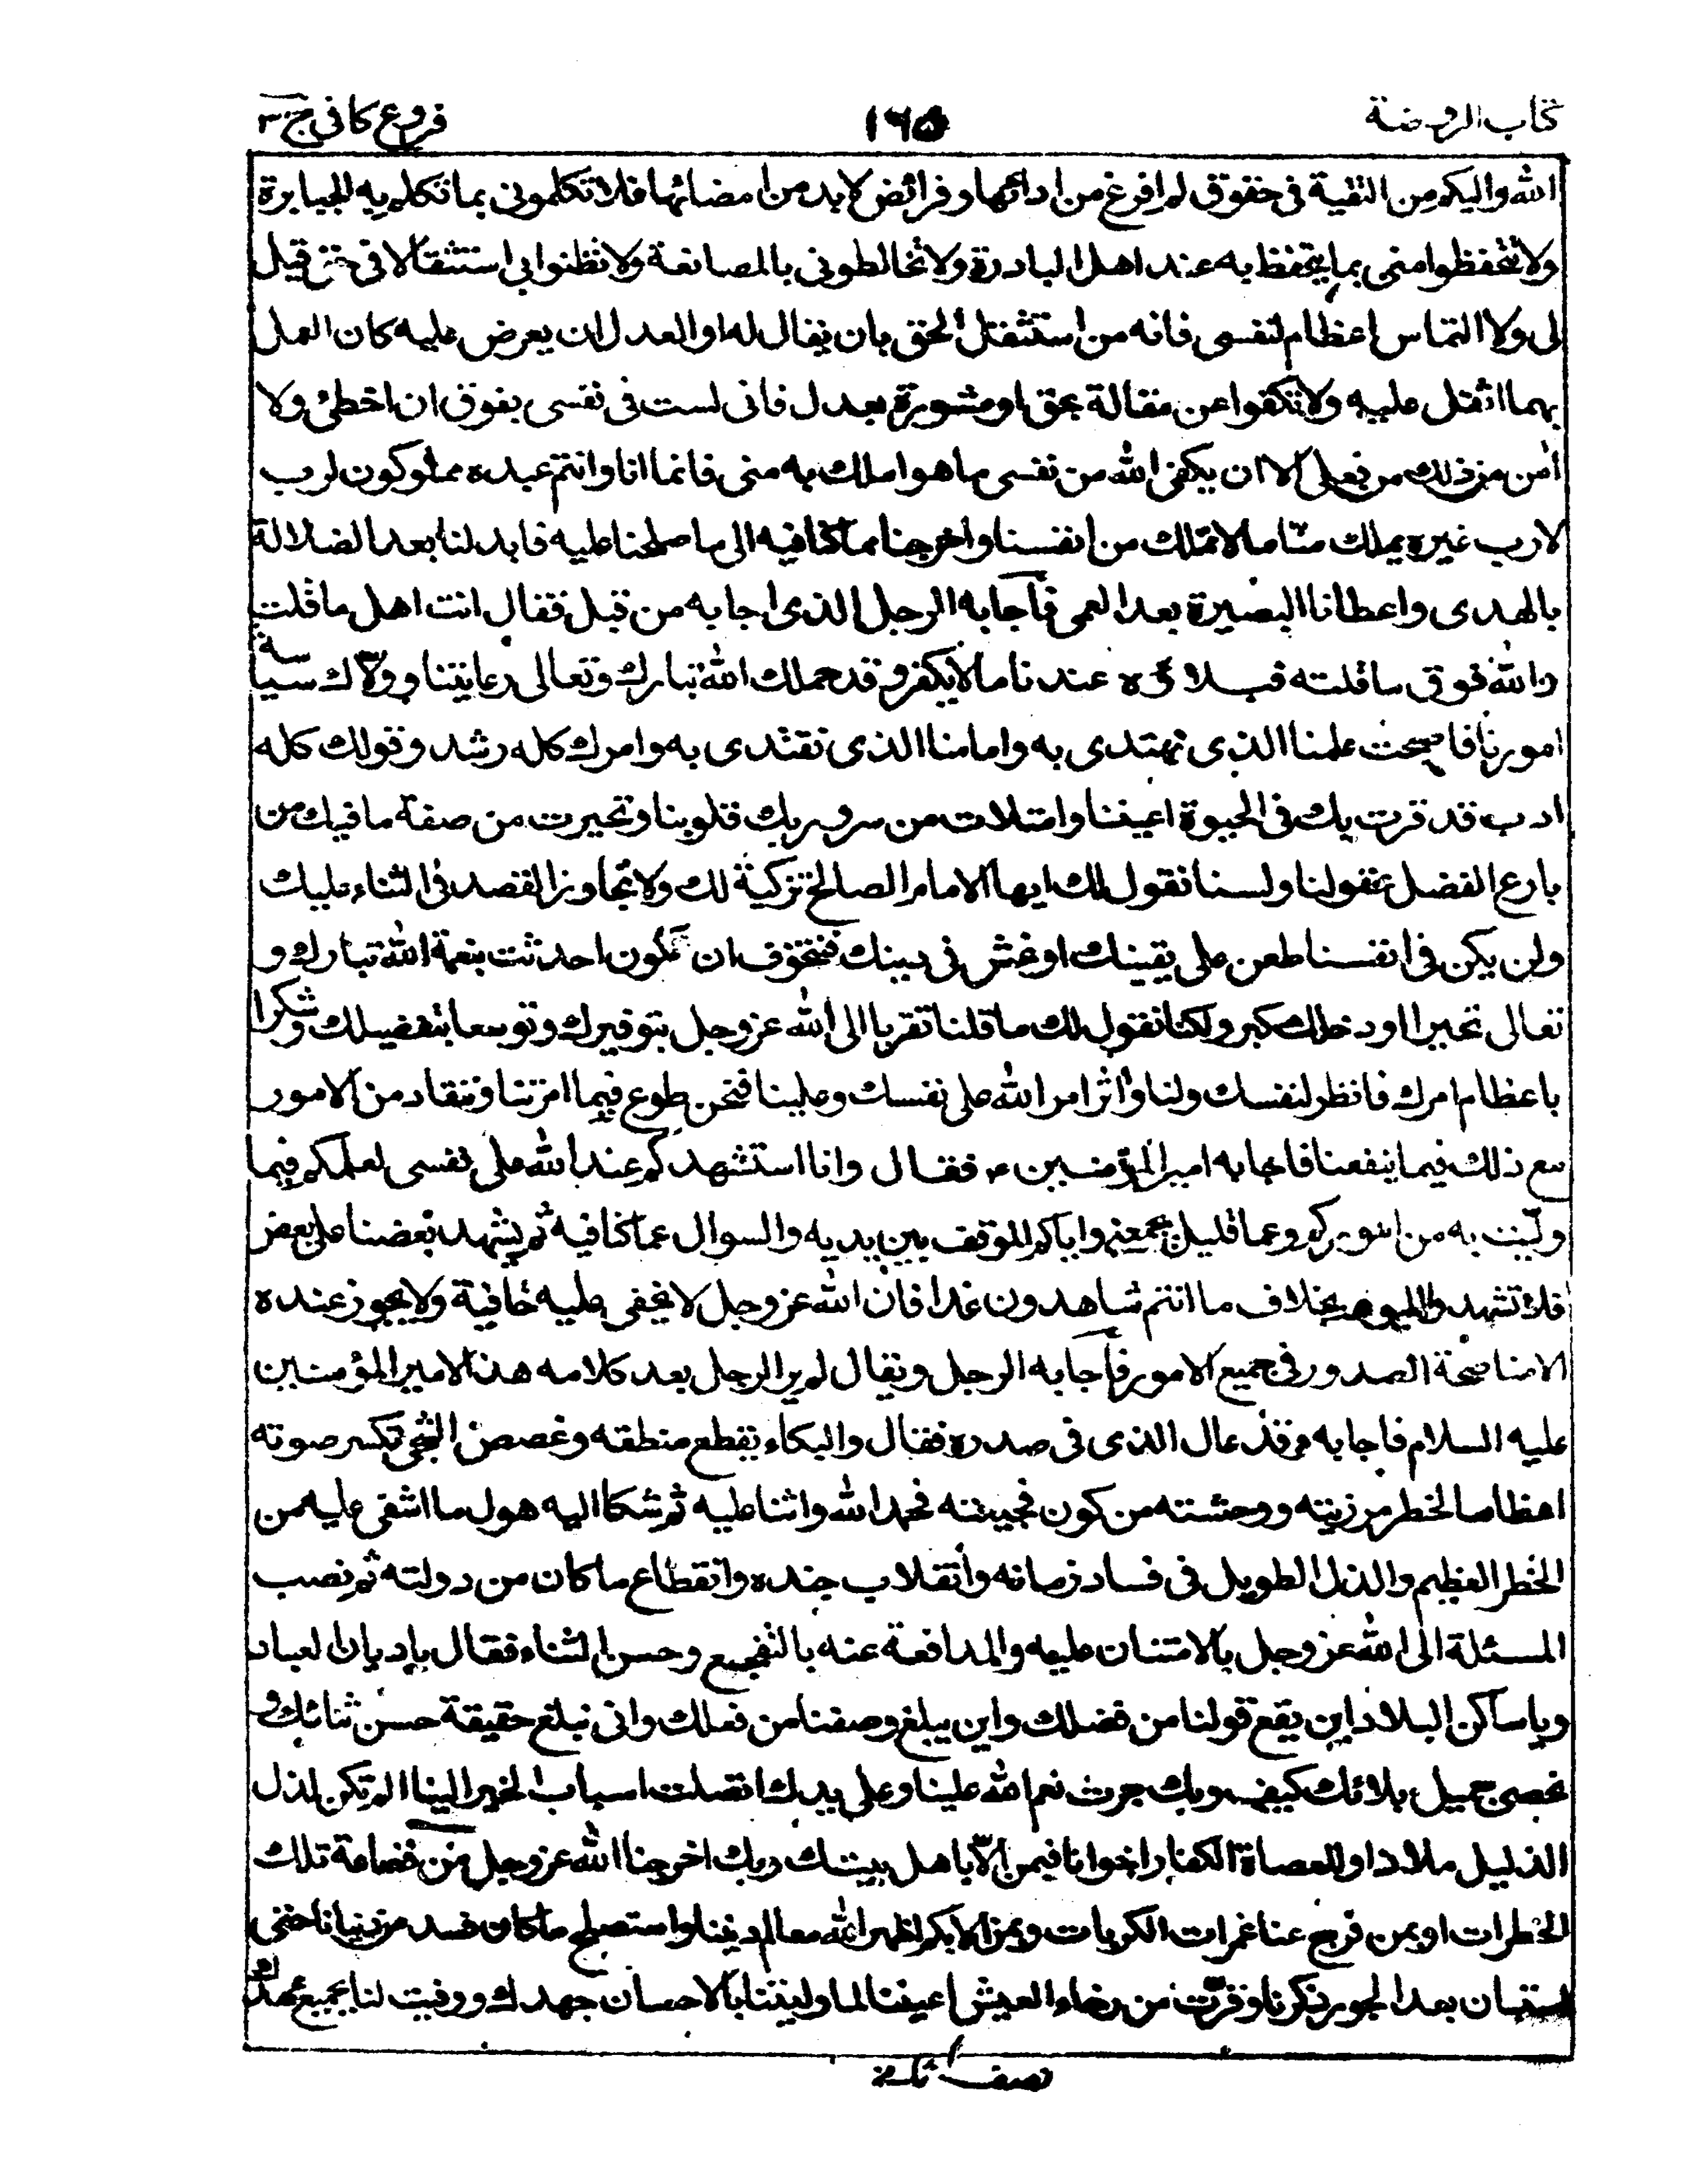 كتاب الروضة ١٦٥ فروع كافى ج ٣
الله واليكم من التقية فى حقوق لم افرغ من ادائها وفرائض لا بد من امضائها فلا تكلمونى بما تكلم به الجبابرة
ولا تتحفظوا منى بما يتحفظ به عند اهل البادرة ولا تخالطونى بالمصانعة ولا تظنوا بى استثقالا فى حق قيل
لى ولا التماس اعظام لنفسى فانه من استثقل الحق بان يقال له او العدل ان يعرض عليه كان العمل
بهما اثقل عليه ولا تكفوا عن مقالة بحق او مشورة بعدل فانى لست فى نفسى بفوق ان اخطئ ولا
امن من ذلك من فعلى الا ان يكفى الله من نفسى ما هو املك به منى فانما انا وانتم عبده مملوكون لرب
لا رب غيره يملك منّا ما لا نملك من انفسنا واخرجنا مما كنا فيه الى ما صلحنا عليه فابدلنا بعد الضلالة
بالهدى واعطانا البصيرة بعد العمى فاجابه الرجل الذى اجابه من قبل فقال انت اهل ما قلت
والله فوق ما قلته فبلاؤه عندنا ما لا يكفر وقد حملك الله تبارك وتعالى رعايتنا وولّاك سياسة
امورنا فاصبحت علمنا الذى نهتدى به وامامنا الذى نقتدى به وامرك كله رشد وقولك كله
ادب قد قرت بك فى الحيوة اعيننا وامتلات من سرور بك قلوبنا وتحيرت من صفة ما فيك من
بارع الفضل عقولنا ولسنا نقول لك ايها الامام الصالح تزكية لك ولا تجاوز القصد فى الثناء عليك
ولن يكن فى انفسنا طعن على يقينك او غش فى دينك فنتخوف ان تكون احدثت بنعمة الله تبارك و
تعالى تحبرا او دخلك كبر ولكنا نقول لك ما قلنا تقربا الى الله عز وجل بتوقيرك وتوسعا بتفضيلك وشكرا
باعظام امرك فانظر لنفسك ولنا واثر امر الله على نفسك وعلينا فنحن طوع فيما امرتنا وننقاد من الامور
مع ذلك فيما ينفعنا فاجابه امير المؤمنين ع فقال وانا استشهدكم عند الله على نفسى لعلمكم فيما
ولّيت به من اموركم وعما قليل يجمعنى واياكم الموقف بين يديه والسوال عما كنا فيه ثم يشهد بعضنا على بعض
فلا تشهدوا اليوم بخلاف ما انتم شاهدون غدا فان الله عز وجل لا يخفى عليه خافية ولا يجوز عنده
الا مناصحة الصدور فى جميع الامور فاجابه الرجل ويقال لم ير الرجل بعد كلامه هذا لامير المؤمنين
عليه السلام فاجابه وقد عال الذى فى صدره فقال والبكاء يقطع منطقه وغصص الشجى تكسر صوته
اعظاما لخطر مرزيته ووحشته من كون فجيعته فحمد الله واثنا عليه ثم شكا اليه هول ما اشفى عليه من
الخطر العظيم والذل الطويل فى فساد زمانه وانقلاب جنده وانقطاع ما كان من دولته ثم نصب
المسئلة الى الله عز وجل بالامتنان عليه والمدافعة عنه بالتفجيع وحسن الثناء فقال ياربان العباد
وياساكن البلاد اين يقع قولنا من فضلك واين يبلغ وصفنا من فعلك وانى نبلغ حقيقة حسن ثنائك و
نحصى جميل بلائك كيف وبك جرت نعم الله علينا وعلى يدك اتصلت اسباب الخير الينا الم تكن لذل
الذليل ملاذا وللعصاة الكفار اخوانا فبمن الّا باهل بيتك وبك اخرجنا الله عز وجل من فضاعة تلك
الخطرات او بمن فرج عنا غمرات الكربات وبمن الا بكم اظهر الله معالم ديننا واستصلح ما كان فسد من دنيانا حتى
استبان بعد الجور ذكرنا وقرّت من رخاء العيش اعيننا لما وليتنا بالاحسان جهدك ووفيت لنا بجميع عهدك